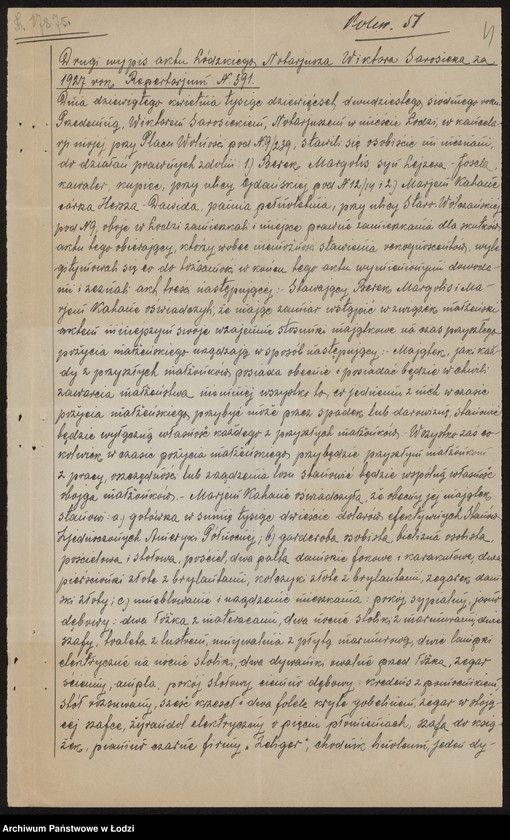 R. 1373/5.
Polem. 51
Drugi wypis aktu Łódzkiego Notarjusza Wiktora Sarosieka za
1927 rok. Repertorjum N 391.
Dnia dziewiątego kwietnia tysiąc dziewięćset dwudziestego siódmego roku.
Przedemną, Wiktorem Sarosiekiem, Notarjuszem w mieście Łodzi, w kancela-
rji mojej przy Placu Wolności pod N 9/239, stawili się osobiście mi nieznani,
do działań prawnych zdolni: 1) Berek Margolis, syn Lejzera-Joska,
kawaler, kupiec, przy ulicy Gdańskiej pod N 12/14 i 2) Marjem Kahane
córka Hersza Dawida, panna pełnoletnia, przy ulicy Staro-Wólczańskiej
pod N 9, oboje w Łodzi zamieszkali i miejsce prawne zamieszkania dla skutków
aktu tego obierający, którzy wobec niemożności stawienia rekognoscentów, wyle-
gitymowali się co do tożsamości w końcu tego aktu wymienionymi dowoda-
mi i zeznali akt, treści następującej: - Stawający Berek Margolis i Ma-
rjem Kahane oświadczyli, że mając zamiar wstąpić w związek małżeński
aktem niniejszym swoje wzajemne stosunki majątkowe na czas przyszłego
pożycia małżeńskiego urządzają w sposób następujący: - Majątek, jaki każ-
dy z przyszłych małżonków posiada obecnie i posiadać będzie w chwili
zawarcia małżeństwa niemniej wszystko to, co jednemu z nich w czasie
pożycia małżeńskiego przybyć może przez spadek lub darowiznę, stanowić
będzie wyłączną własność każdego z przyszłych małżonków. Wszystko zaś co-
kolwiek w czasie pożycia małżeńskiego przybędzie przyszłym małżonkom
z pracy, oszczędności lub zrządzenia losu stanowić będzie wspólną własność
obojga małżonków. - Marjem Kahane oświadczyła, że obecny jej majątek
stanowi: a) gotówka w sumie tysiąc dwieście dolarów efektywnych Stanów
Zjednoczonych Ameryki Północnej; b) garderoba osobista, bielizna osobista,
pościelowa i stołowa, pościel, dwa palta damskie fokowe i karakułowe, dwa
pierścionki złote z brylantami, kolczyki złote z brylantami, zegarek dam-
ski złoty; c) umeblowanie i urządzenie mieszkania: pokój sypialny, jasno
dębowy: dwa łóżka z materacami, dwa nocne stoliki z marmurami, dwie
szafy, toaleta z lustrem, umywalnia z płytą marmurową, dwie lampki
elektryczne na nocne stoliki, dwa dywaniki owalne przed łóżka, zegar
ścienny, ampla; pokój stołowy ciemno dębowy: kredens z pomocnikiem,
stół rozsuwany, sześć krzeseł i dwa fotele kryte gobelinem, zegar w stoją-
cej szafce, żyrandol elektryczny o pięciu płomieniach, szafa do ksią-
żek, pianino czarne firmy "Zeliger", chodnik linoleum, jeden dy-
Archiwum Państwowe w Łodzi